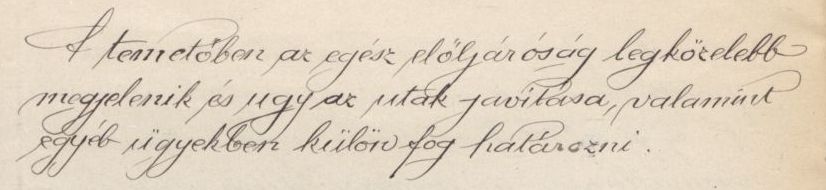 A temetőben az egész előljáróság legközelebb
megjelenik és ugy az utak javitása, valamint
egyéb ügyekben külön fog határozni.